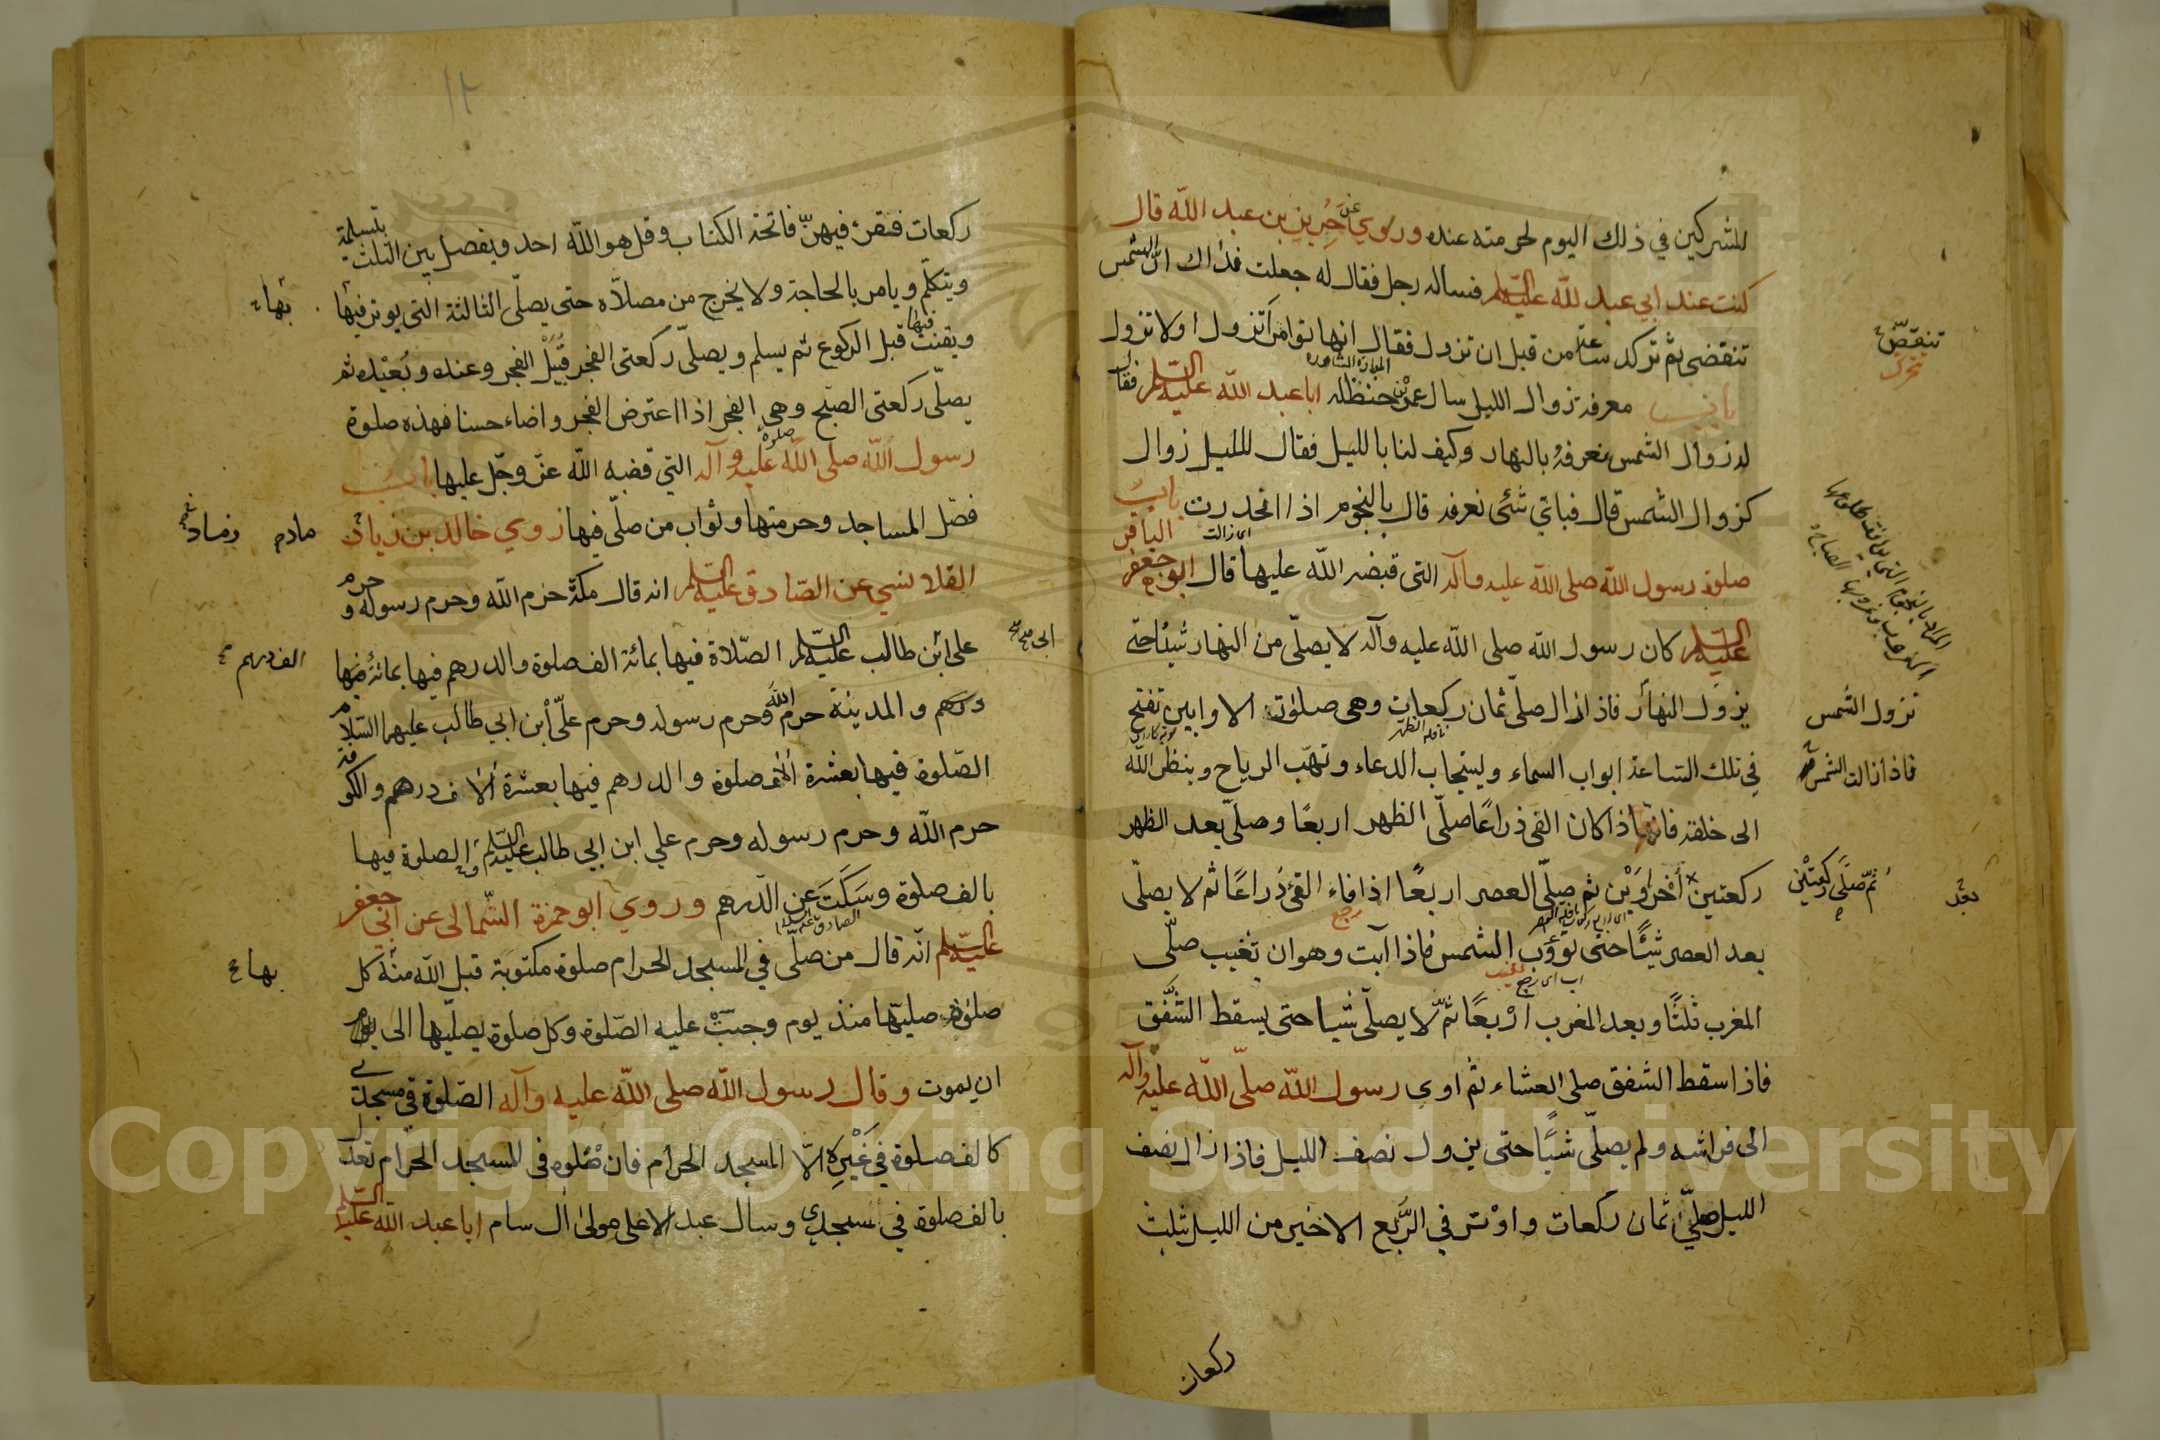 للمشركين في ذلك اليوم لحرمته عنده وروي عن حريز بن عبد الله قال
كنت عند ابي عبد الله عليه السلم فساله رجل فقال له جعلت فداك ان الشمس
تنقضى ثم تركد ساعة من قبل ان تزول فقال انها توامر اتزول او لا تزول
باب معرفة زوال الليل سال عمر بن حنظله ابا عبد الله عليه السلم فقال
له زوال الشمس نعرفه بالنهار وكيف لنا بالليل فقال لليل زوال
كزوال الشمس قال فباي شئ نعرفه قال بالنجوم اذا انحدرت باب
صلوة رسول الله صلى الله عليه وآله التى قبضه الله عليها قال ابو جعفر الباقر
عليه السلم كان رسول الله صلى الله عليه وآله لا يصلّى من النهار شيئا حتى
يزول النهار فاذا زال صلّى ثمان ركعات وهى صلوة الاوابين تفتح
في تلك الساعة ابواب السماء ويستجاب الدعاء وتهبّ الرياح وينظر الله
الى خلقه فاذا كان الفئ ذراعًا صلّى الظهر اربعًا وصلّى بعد الظهر
ركعتين أخراوَيْن ثم صلّى العصر اربعًا اذا فاء الفئ ذراعًا ثم لا يصلّى
بعد العصر شيئًا حتى تؤوب الشمس فاذا آبت وهو ان تغيب صلّى
المغرب ثلثًا وبعد المغرب اربعًا ثمّ لا يصلّى شيئا حتى يسقط الشفق
فاذا سقط الشفق صلى العشاء ثم اوى رسول الله صلّى الله عليه وآله
الى فراشه ولم يصلّى شيئًا حتى يزول نصف الليل فاذا زال نصف
الليل صلّى ثمان ركعات واوتر في الرّبع الاخير من الليل ثلث
ركعات
تنقضّ
تزول الشمس
فاذا زالت الشمس
ثمّ صلّى ركعتين
بعد
١٢
ركعات فيقرء فيهنّ فاتحة الكتاب وقل هو الله احد ويفصل بين الثلث بتسليمة
ويتكلّم ويامر بالحاجة ولا يخرج من مصلاّه حتى يصلّى الثالثة التى يوتر فيها
ويقنت فيها قبل الركوع ثم يسلم ويصلّى ركعتى الفجر قُبَيْل الفجر وعنده وبُعَيْده ثم
يصلّى ركعتى الصبح وهى الفجر اذا اعترض الفجر واضاء حسنا فهذه صلوة
رسول الله صلى الله عليه وآله التي قبضه الله عزّ وجّل عليها باب
فضل المساجد وحرمتها وثواب من صلّى فيها روي خالد بن زياد
القلانسي عن الصّادق عليه السلم انه قال مكّة حرم الله وحرم رسوله وحرم
على ابن طالب عليه السلم الصّلاة فيها بمائة الف صلوة والدرهم فيها بمائة
درهم والمدينة حرم الله وحرم رسوله وحرم علىّ ابن ابي طالب عليهما السّلام
الصّلوة فيها بعشرة الاف صلوة والدرهم فيها بعشرة آلاف درهم والكوفة
حرم الله وحرم رسوله وحرم علي ابن ابي طالب عليه السلم الصلوة فيها
بالف صلوة وسَكَتَ عن الدّرهم وروي ابو حمزة الثّمالى عن ابي جعفر
عليه السلم انّه قال من صلّى في المسجد الحرام صلوة مكتوبة قبل الله منه كل
صلوة صليّها منذ يوم وجبَتْ عليه الصّلوة وكل صلوة يصلّيها الى
ان يموت وقال رسول الله صلى الله عليه وآله الصّلوة في مسجدي
كالف صلوة في غَيْرِه الاّ المسجد الحرام فان صلوة في المسجد الحرام تعدل
بالف صلوة في مسجدي وسال عبد الاعلى مولى آل سام ابا عبد الله عليه السلم
بها
الف درهم
ابى
بها
Copyright © King Saud University